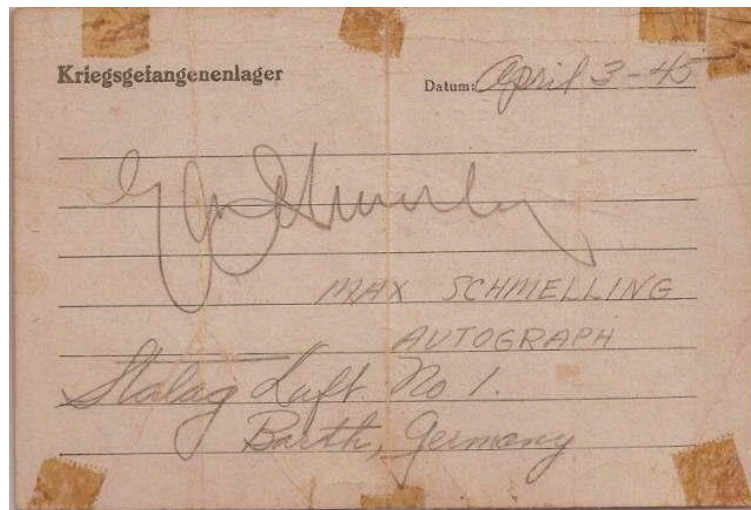 Kriegsgefangenenlager Datum: April 3-45
MAX SCHMELLING
AUTOGRAPH
Stalag Luft No 1.
Barth, Germany